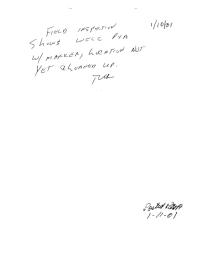 1/10/01
FIELD INSPECTION
SHOWS WELL P&A
W/ MARKER, LOCATION NOT
YET CLEANED UP.
1-11-01